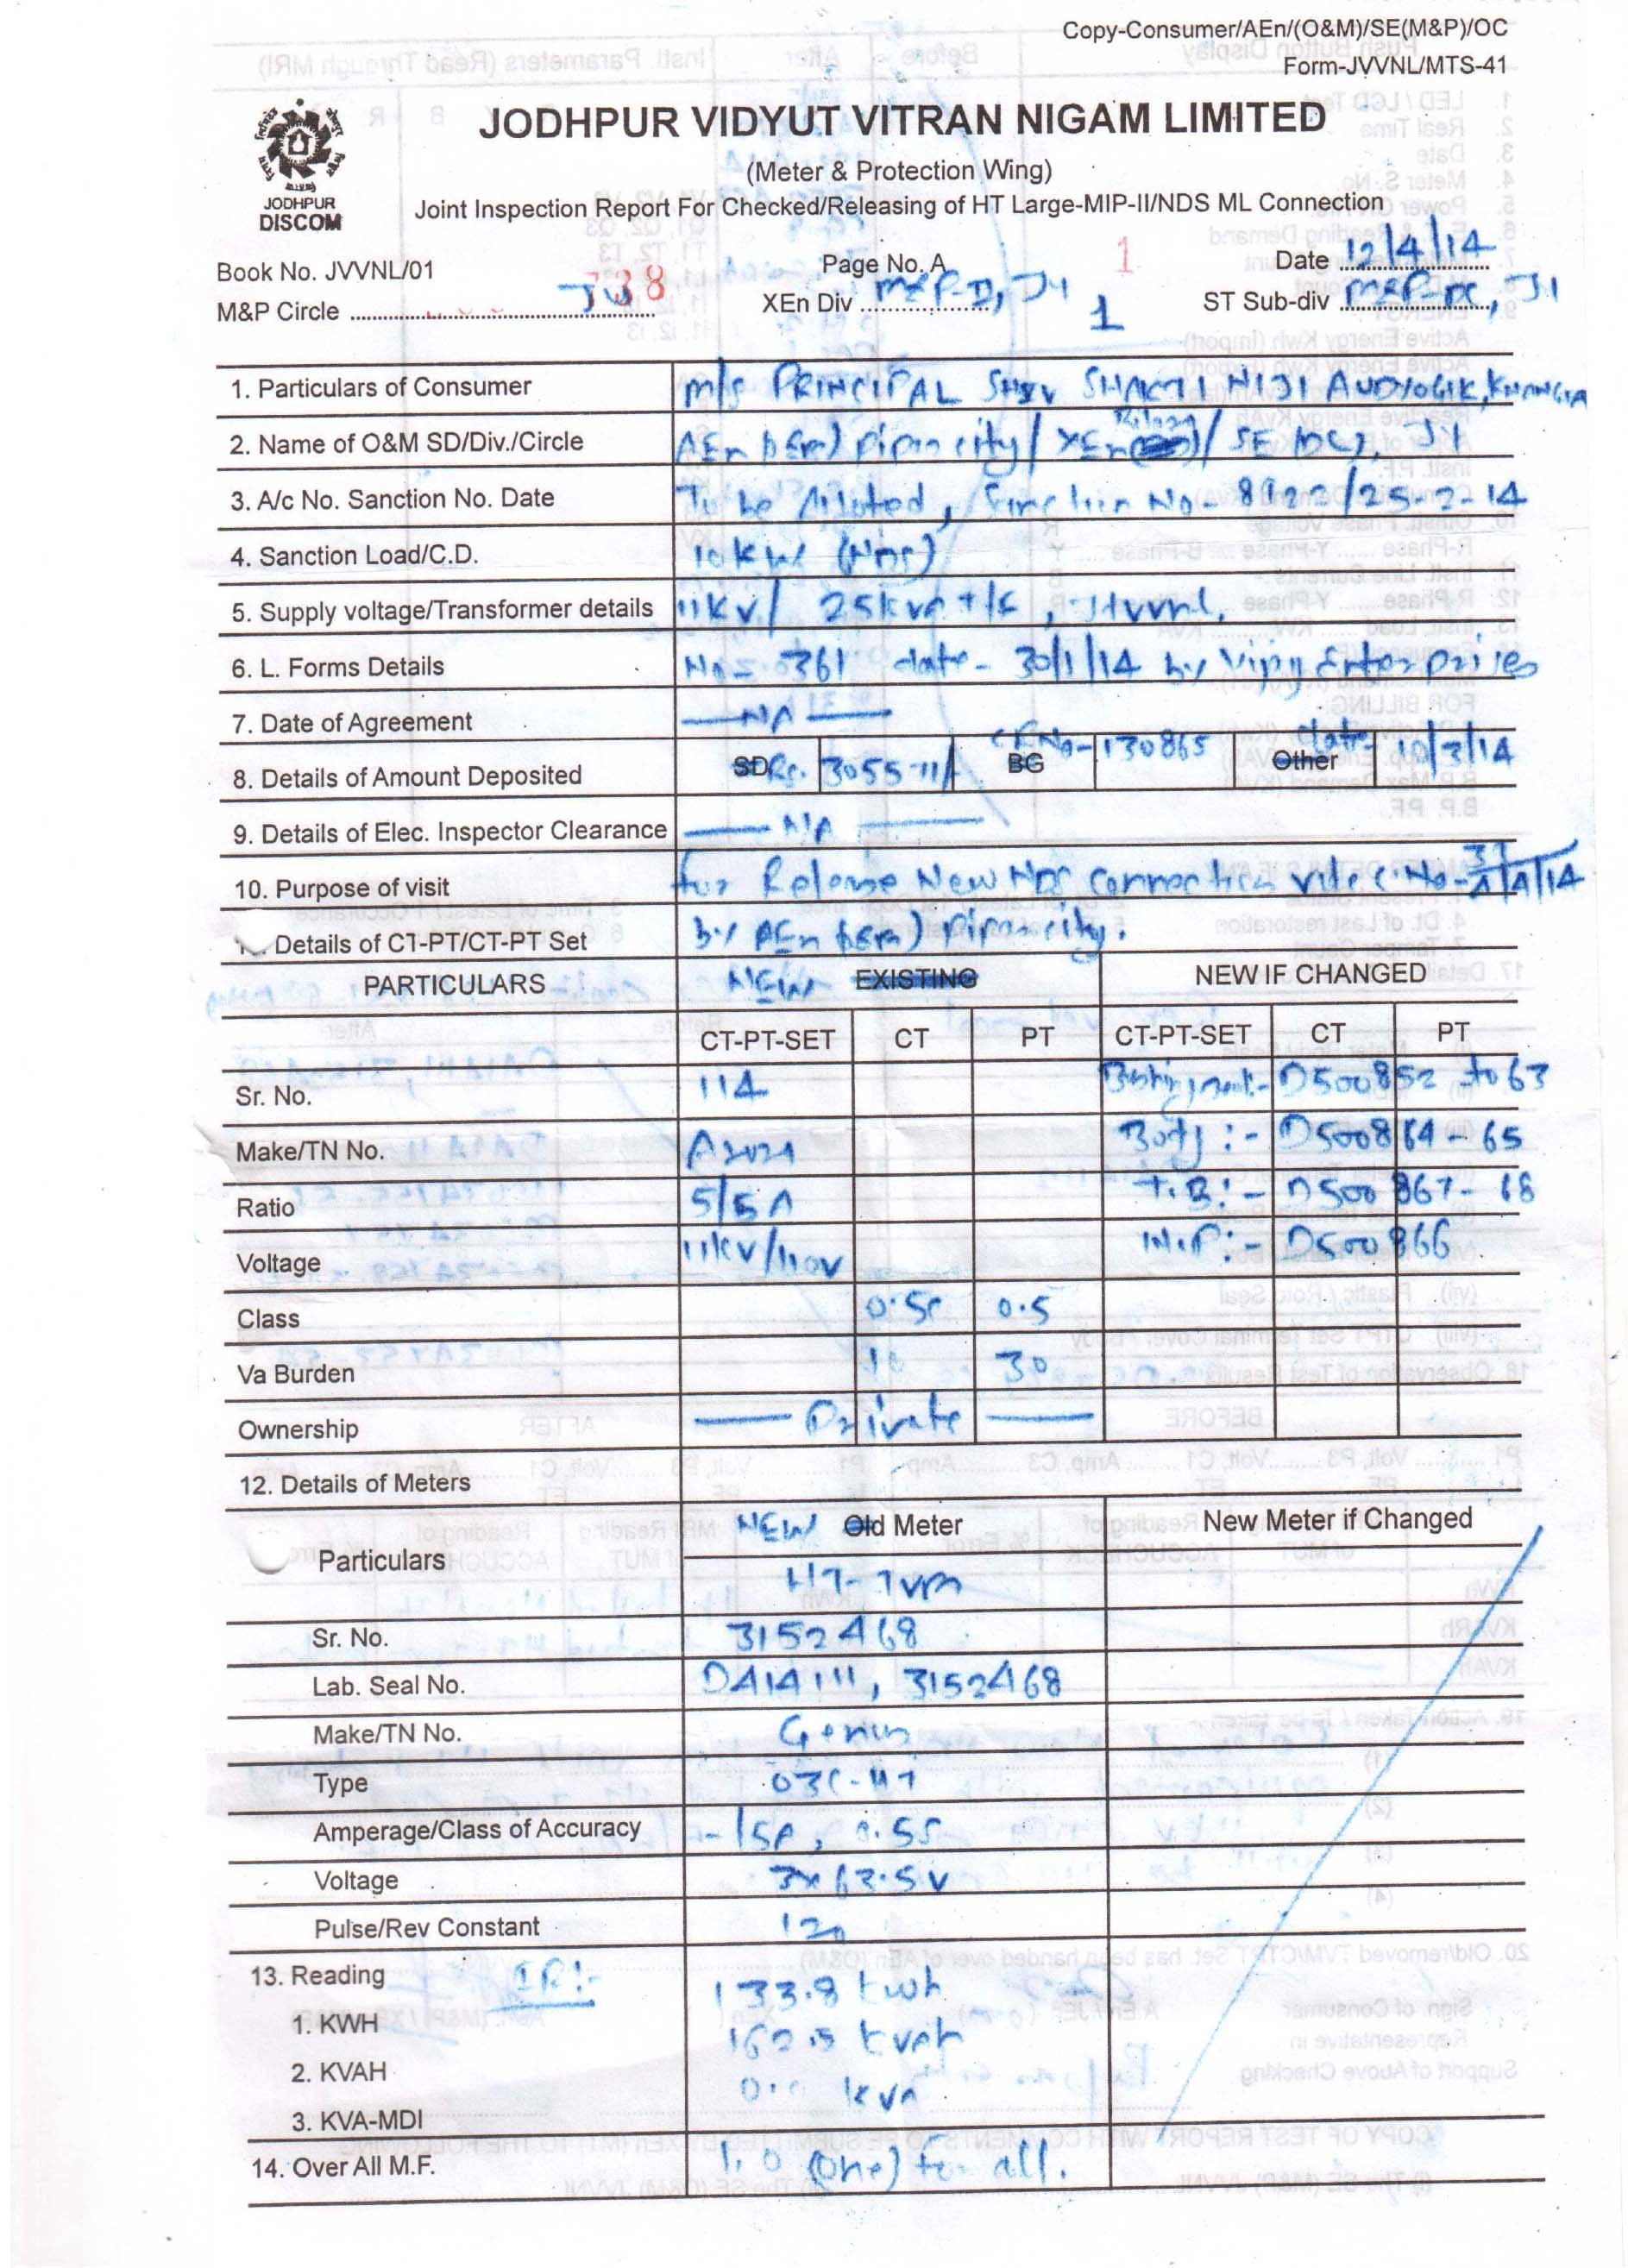 Copy-Consumer/AEn/(O&M)/SE(M&P)/OC
Form-JVVNL/MTS-41
JODHPUR VIDYUT VITRAN NIGAM LIMITED
(Meter & Protection Wing)
JODHPUR
DISCOM
Joint Inspection Report For Checked/Releasing of HT Large-MIP-II/NDS ML Connection
Book No. JVVNL/01 738 Page No. A 1 Date 12/4/14
M&P Circle JU XEn Div M&P-II, JU 1 ST Sub-div M&P-IX, JU
1. Particulars of Consumer M/s PRINCIPAL SHIV SHAKTI NIJI AUDYOGIK,
2. Name of O&M SD/Div./Circle AEn (O&M) Pipar city / XEn / SE (DC), JU
3. A/c No. Sanction No. Date To be Alloted, Sanction No- 8922/25-2-14
4. Sanction Load/C.D. 10 KW (NDS)
5. Supply voltage/Transformer details 11KV/ 25kva T/F, JVVNL.
6. L. Forms Details No- 0361 date- 30/1/14 by Enterprises
7. Date of Agreement NA
8. Details of Amount Deposited SD Rs. 30557/- BG CR No- 130865 Other date- 10/3/14
9. Details of Elec. Inspector Clearance NA
10. Purpose of visit for Release New NDS connection vide
Details of CT-PT/CT-PT Set by AEn (O&M) Pipar city.
PARTICULARS NEW EXISTING NEW IF CHANGED
CT-PT-SET CT PT CT-PT-SET CT PT
Sr. No. 114 D500852 to 63
Make/TN No. Body :- D500864-65
Ratio 5/5A T.B:- D500867-68
Voltage 11KV/110V D500866
Class 0.5S 0.5
Va Burden 10 30
Ownership Private
12. Details of Meters
Particulars NEW Old Meter New Meter if Changed
HT-TVM
Sr. No. 3152468
Lab. Seal No. DA14111, 3152468
Make/TN No. Genus
Type 03C-HT
Amperage/Class of Accuracy -/5A, 0.5S
Voltage 3x63.5V
Pulse/Rev Constant
13. Reading IR:- 133.8 kwh
1. KWH
kvah
2. KVAH
0.0 kva
3. KVA-MDI
14. Over All M.F. 1.0 (One) for all.